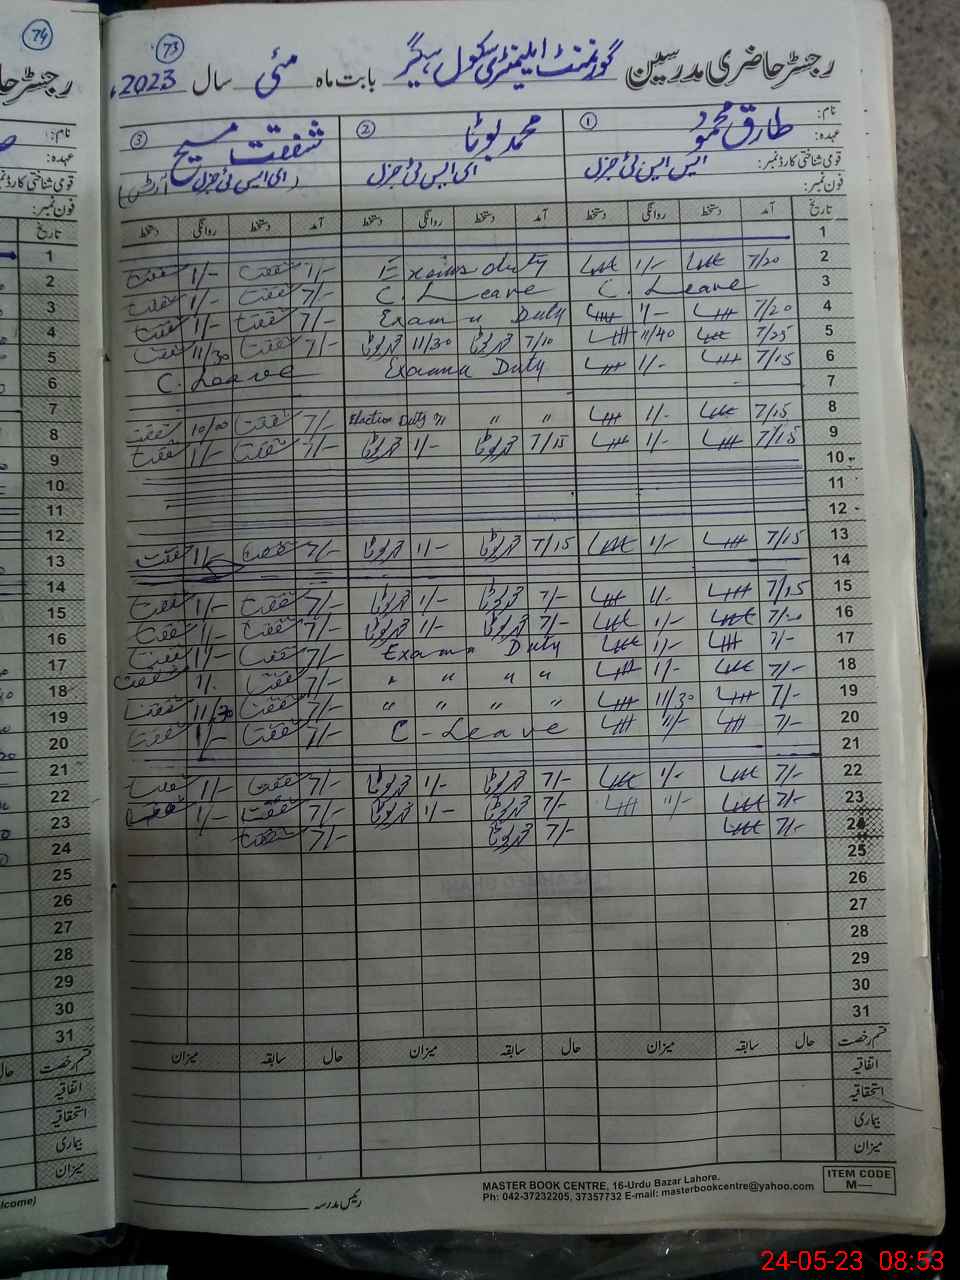 74
73
رجسٹر حاضری مدرسین گورنمنٹ ایلیمنٹری سکول ہیگر بابت ماہ مئی سال 2023ء
نام: ① طارق محمود ② محمد بوٹا ③ شفقت مسیح
عہدہ: ایس ایس ٹی جنرل ای ایس ٹی جنرل (ای ایس ٹی جنرل آرٹس)
قومی شناختی کارڈ نمبر:
فون نمبر:
تاریخ آمد دستخط روانگی دستخط آمد دستخط روانگی دستخط آمد دستخط روانگی دستخط
1
2 7/20 1/- Exams duty 1/- شفقت 1/- شفقت
3 C. Leave C. Leave 7/- شفقت 1/- شفقت
4 7/20 1/- Exam Duty 7/- شفقت 1/- شفقت
5 7/25 11/40 7/10 محمد بوٹا 11/30 محمد بوٹا 7/- شفقت 11/30 شفقت
6 7/15 1/- Exam Duty C. Leave
7
8 7/15 1/- Election Duty " " " 7/- شفقت 10/00 شفقت
9 7/15 1/- 7/15 محمد بوٹا 1/- محمد بوٹا 7/- شفقت 1/- شفقت
10
11
12
13 7/15 1/- 7/15 محمد بوٹا 1/- محمد بوٹا 7/- شفقت 1/- شفقت
14
15 7/15 1/- 7/- محمد بوٹا 1/- محمد بوٹا 7/- شفقت 1/- شفقت
16 7/20 1/- 7/- محمد بوٹا 1/- محمد بوٹا 7/- شفقت 1/- شفقت
17 7/- 1/- Exam Duty 7/- شفقت 1/- شفقت
18 7/- 1/- " " " " 7/- شفقت 1/- شفقت
19 7/- 11/30 " " " " 7/- شفقت 11/30 شفقت
20 7/- 11/- C-Leave 7/- شفقت 1/- شفقت
21
22 7/- 1/- 7/- محمد بوٹا 1/- محمد بوٹا 7/- شفقت 1/- شفقت
23 7/- 11/- 7/- محمد بوٹا 1/- محمد بوٹا 7/- شفقت 1/- شفقت
24 7/- 7/- محمد بوٹا 7/- شفقت
25
26
27
28
29
30
31
قسم رخصت حال سابقہ میزان حال سابقہ میزان حال سابقہ میزان
اتفاقیہ
استحقاقیہ
بیماری
میزان
رئیس مدرسہ
MASTER BOOK CENTRE, 16-Urdu Bazar Lahore.
Ph: 042-37232205, 37357732 E-mail: masterbookcentre@yahoo.com
ITEM CODE
M—
رجسٹر حا
نام:
عہدہ:
قومی شناختی کارڈ نمبر
فون نمبر:
تاریخ
1
2
3
4
5
6
7
8
9
10
11
12
13
14
15
16
17
18
19
20
21
22
23
24
25
26
27
28
29
30
31
قسم رخصت حال
اتفاقیہ
استحقاقیہ
بیماری
میزان
lcome)
24-05-23 08:53